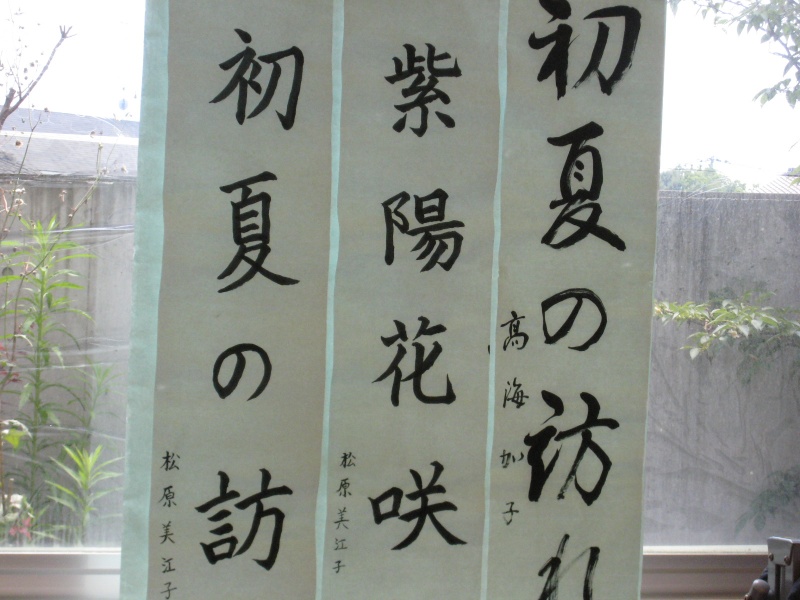 初夏の訪れ
高海如子
紫陽花咲
松原美江子
初夏の訪
松原美江子